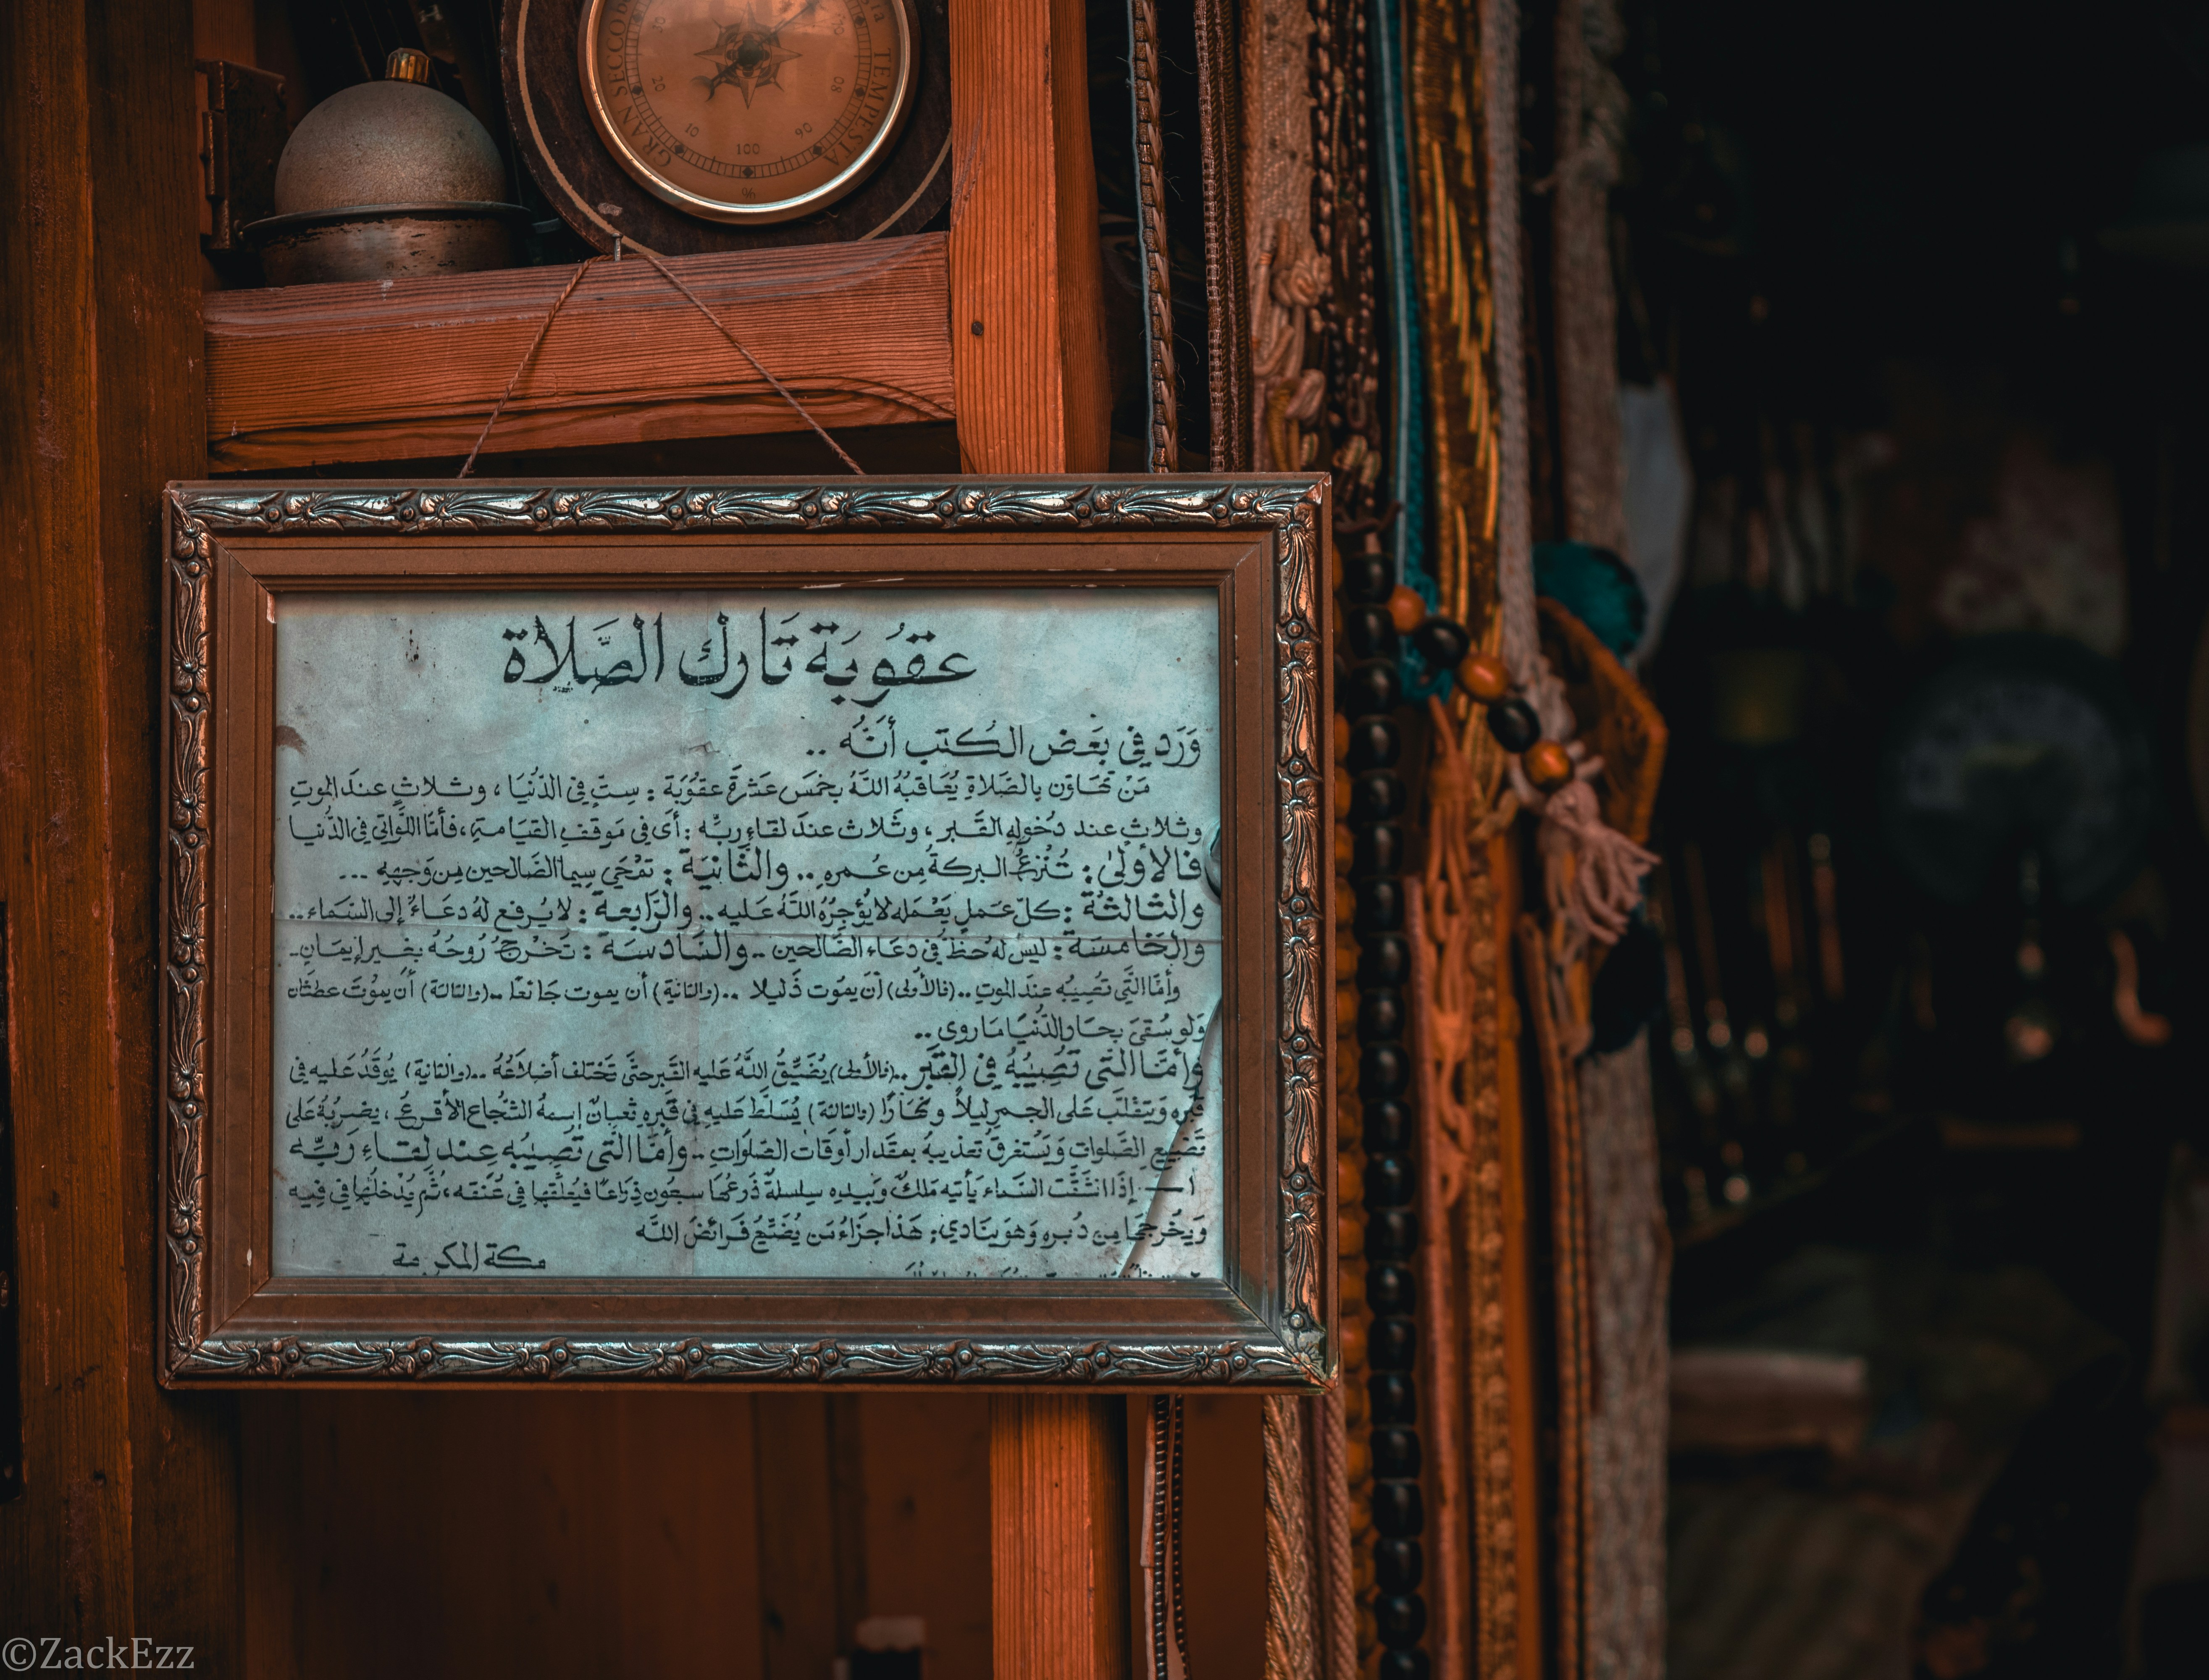 GRAN SECCO
TEMPESTA
20
10
100
90
80
%
عقُوبَة تَارك الصَّلاة
وَرَد في بَعَض الكُتب أنَّهُ ..
مَنْ تَهَاوَن بِالصَّلاةِ يُعَاقبُهُ اللَّهُ بخمسَ عَشرَةَ عقُوُبَة : سِتٍ في الدُّنيَا ، وثلاثٍ عندَ الموتِ
وثلاثٍ عند دُخولِهِ القَبر ، وثَلاث عندَ لقاءِ ربِّه : أي في مَوقفِ القيَامةِ ، فأمَّا اللَّواتي في الدُّنيا
فالأولىٰ : تُنْزعُ البركةُ مِن عُمرهِ .. والثَّانيَة : تمْحَىٰ سِيما الصَّالحين مِن وَجههِ ...
والثالثة : كلّ عَملٍ يَعْمَله لا يُؤجِرُهُ اللَّهُ عَليه .. والرَّابعة : لا يُرفع لهُ دعَاءٌ إلى السَّمَاء ..
والخامسَة : ليسَ لهُ حظٌ في دعَاء الصَّالحين .. والسَّادسَة : تخْرجُ رُوحُهُ بغَير إيمَانٍ ..
وأمَّا التَّي تصُيبُه عندَ الموتِ .. (فالأولى) أن يمُوت ذَليلا .. (والثانية) أن يموت جَائعًا .. (والثالثة) أن يموتَ عطشَان
وَلو سُقيَ بحارِ الدُّنيَا مَا روي ..
وأمَّا التي تُصِيبُهُ في القَبَر .. (فالأولى) يُضَيّقُ اللَّهُ عَليه القَبر حتَّى تَختلف أضلاَعُهُ .. (والثانية) يُوقَدُ عَليه في
قَبره وَيَتقلَّب عَلى الجمرِ ليلاً ونهَارًا (والثالثة) يُسَلَّط عَليهِ في قَبرِهِ ثعبانٌ إسمهُ الشُّجاع الأقرعُ ، يضربُهُ عَلى
تَضْييع الصَّلوات وَيَستغرقُ تعذيبهُ بمقدَار أوقَات الصَّلوَاتِ .. وأمَّا التي تصِيبُه عِند لقاء رَبِّه
١ — إذَا انشَقَّت السَّماء يَأتيه مَلكٌ وَبيدِه سِلسلةٌ ذَرعُهَا سبعُون ذِرَاعًا فيُعَلّقها في عُنقه ، ثُم يُدْخلُها في فِيهِ
وَيُخرجهَا مِن دُبرِهِ وَهوَ ينَادي : هَذا جزَاءُ مَن يُضَيّعُ فَرائضَ اللَّه
مكة المكرمة
©ZackEzz